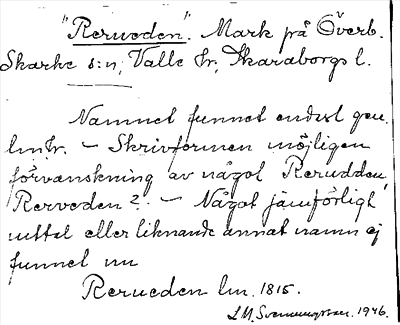 "Rerueden". Mark på Överb.
Skarke s:n, Valle hr, Skaraborgs l.
Namnet funnet endast gm.
lm hr. – Skrivformen möjligen
förvanskning av något Rerudden,
Rerveden? – Något jämförligt
uttal eller liknande annat namn ej
funnet nu
Rerueden lm. 1815.
1946.